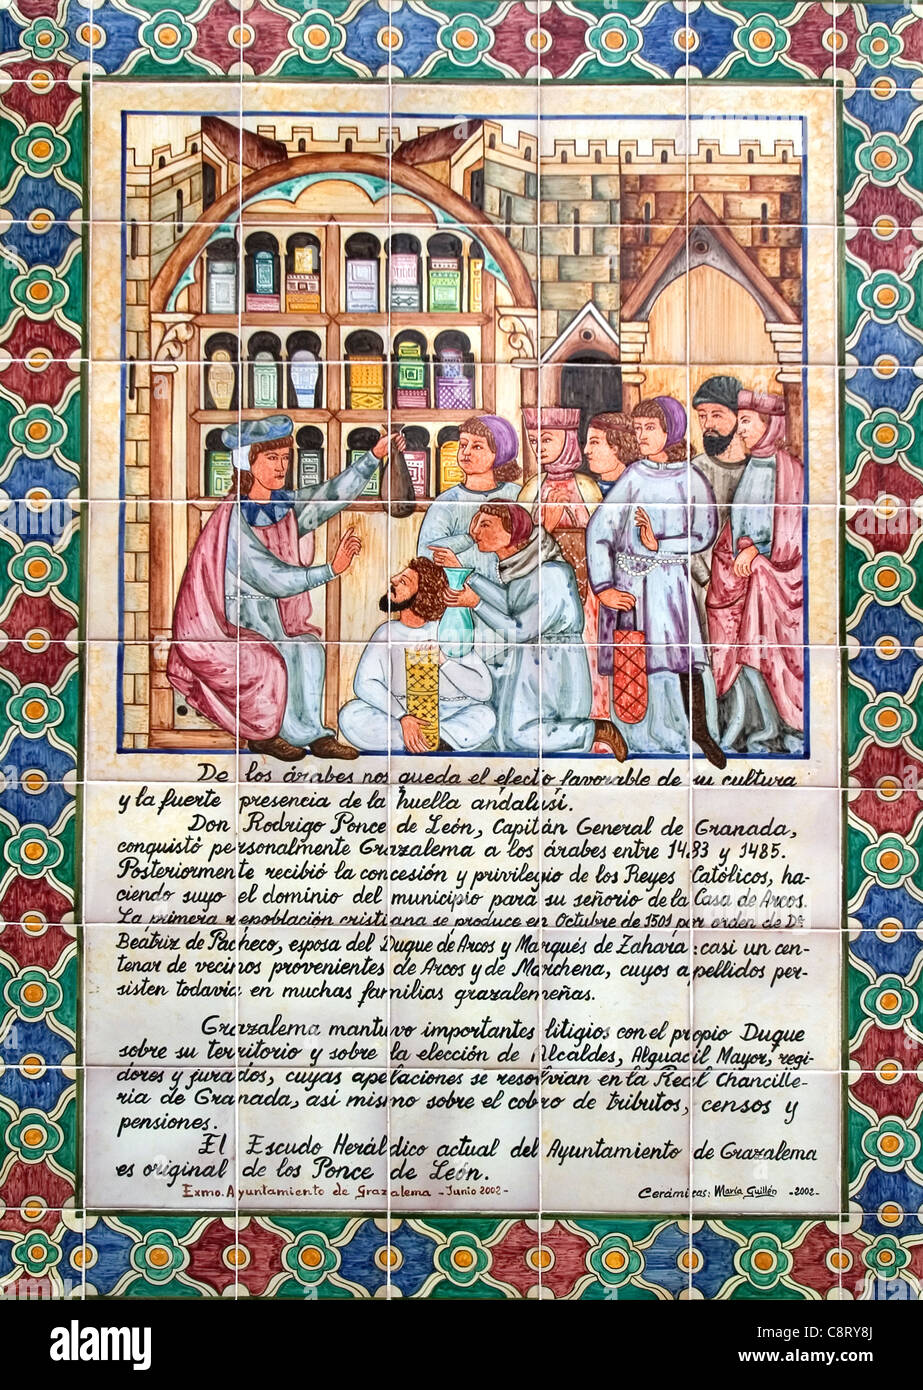 De los árabes nos queda el efecto favorable de su cultura
y la fuerte presencia de la huella andalusí.
Don Rodrigo Ponce de León, Capitán General de Granada,
conquistó personalmente Grazalema a los árabes entre 1483 y 1485.
Posteriormente recibió la concesión y privilegio de los Reyes Católicos, ha-
ciendo suyo el dominio del municipio para su señorio de la Casa de Arcos.
La primera repoblación cristiana se produce en Octubre de 1501 por orden de Dª
Beatriz de Pacheco, esposa del Duque de Arcos y Marqués de Zahara: casi un cen-
tenar de vecinos provenientes de Arcos y de Marchena, cuyos apellidos per-
sisten todavia en muchas familias grazalemeñas.
Grazalema mantuvo importantes litigios con el propio Duque
sobre su territorio y sobre la elección de Alcaldes, Alguacil Mayor, regi-
dores y jurados, cuyas apelaciones se resolvian en la Real Chancille-
ria de Granada, asi mismo sobre el cobro de tributos, censos y
pensiones.
El Escudo Heráldico actual del Ayuntamiento de Grazalema
es original de los Ponce de León.
Exmo. Ayuntamiento de Grazalema - Junio 2002 - Cerámicas: María Guillén - 2002 -
alamy
Image ID: C8RY8J
www.alamy.com